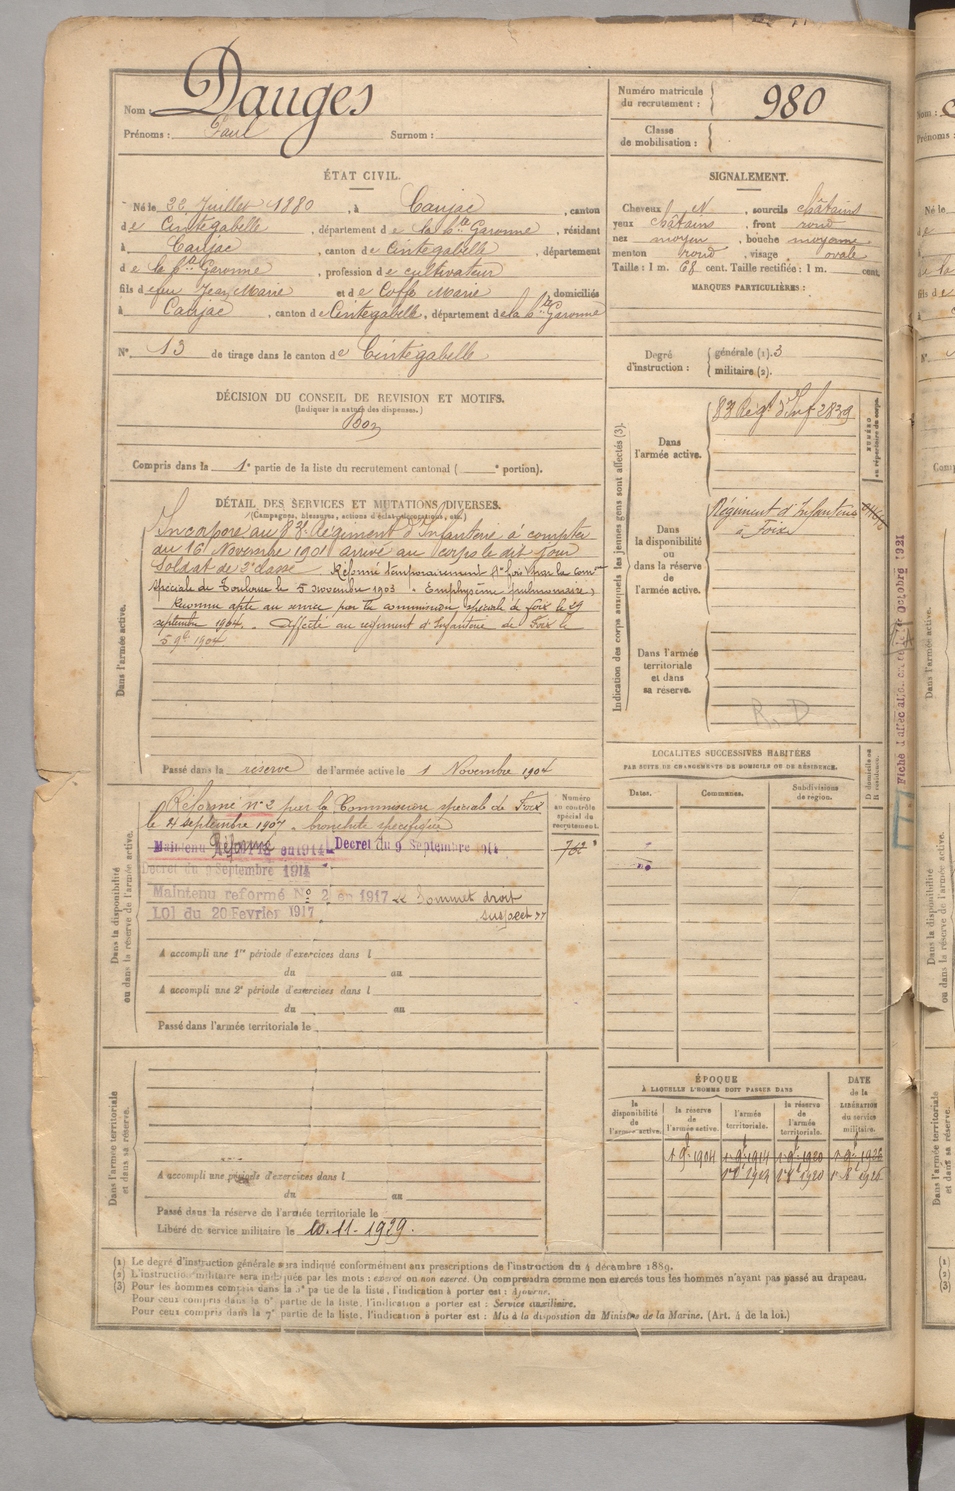 Nom : Dauges
Prénoms : Paul Surnom :
Numéro matricule du recrutement : 980
Classe de mobilisation :
ÉTAT CIVIL.
Né le 22 Juillet 1880, à Caujac, canton
de Cintegabelle, département de la Hte Garonne, résidant
à Caujac, canton de Cintegabelle, département
de la Hte Garonne, profession de cultivateur
fils de feu Jean Marie et de Coffe Marie domiciliés
à Caujac, canton de Cintegabelle, département de la Hte Garonne
N° 13 de tirage dans le canton de Cintegabelle
SIGNALEMENT.
Cheveux N, sourcils châtains
yeux châtains, front rond
nez moyen, bouche moyenne
menton rond, visage ovale
Taille : 1 m. 68 cent. Taille rectifiée : 1 m. cent.
MARQUES PARTICULIÈRES :
Degré d'instruction : générale (1). 3
militaire (2).
DÉCISION DU CONSEIL DE REVISION ET MOTIFS.
(Indiquer la nature des dispenses.)
Bon
Compris dans la 1e partie de la liste du recrutement cantonal ( e portion).
DÉTAIL DES SERVICES ET MUTATIONS DIVERSES.
(Campagnes, blessures, actions d'éclat, décorations, etc.)
Dans l'armée active.
Incorporé au 83e Régiment d'Infanterie à compter
du 16 Novembre 1901 arrivé au corps le dit jour
Soldat de 2e classe Réformé temporairement 1re fois par la comon
spéciale de Toulouse le 5 novembre 1903. Emphysème pulmonaire,
Reconnu apte au service par la commission spéciale de foix le 29
septembre 1904. Affecté au régiment d'Infanterie de Foix le
5 9bre 1904
Passé dans la réserve de l'armée active le 1 Novembre 1904
Indication des corps auxquels les jeunes gens sont affectés (3).
Dans l'armée active.
83 Régt d'Inf 2839
NUMÉRO au répertoire du corps.
Dans la disponibilité ou dans la réserve de l'armée active.
Régiment d'Infanterie
à Foix
Dans l'armée territoriale et dans sa réserve.
R. D
Fiche d'affectation
Octobre 1921
LOCALITÉS SUCCESSIVES HABITÉES
PAR SUITE DE CHANGEMENTS DE DOMICILE OU DE RÉSIDENCE.
Dates. Communes. Subdivisions de région. D domicile ou R résidence.
Dans la disponibilité ou dans la réserve de l'armée active.
Numéro au contrôle spécial du recrutement.
Réformé n° 2 par la Commission spéciale de Foix
le 21 septembre 1907. bronchite spécifique
Maintenu Réformé en 1914 Décret du 9 Septembre 1914
762
Décret du 9 Septembre 1914
Maintenu reformé N° 2 en 1917 Sommet droit
LOI du 20 Fevrier 1917 suspect
A accompli une 1re période d'exercices dans l
du au
A accompli une 2e période d'exercices dans l
du au
Passé dans l'armée territoriale le
Dans l'armée territoriale et dans sa réserve.
A accompli une période d'exercices dans l
du au
Passé dans la réserve de l'armée territoriale le
Libéré du service militaire le 10.11-1929.
ÉPOQUE
À LAQUELLE L'HOMME DOIT PASSER DANS
la disponibilité de l'armée active. la réserve de l'armée active. l'armée territoriale. la réserve de l'armée territoriale.
DATE de la LIBÉRATION du service militaire.
1 9bre 1904 1 9bre 1914 1 9bre 1920 1 9bre 1926
(1) Le degré d'instruction générale sera indiqué conformément aux prescriptions de l'instruction du 4 décembre 1889.
(2) L'instruction militaire sera indiquée par les mots : exercé ou non exercé. On comprendra comme non exercés tous les hommes n'ayant pas passé au drapeau.
(3) Pour les hommes compris dans la 5e partie de la liste, l'indication à porter est : Ajourné.
Pour ceux compris dans la 6e partie de la liste, l'indication à porter est : Service auxiliaire.
Pour ceux compris dans la 7e partie de la liste, l'indication à porter est : Mis à la disposition du Ministre de la Marine. (Art. 4 de la loi.)